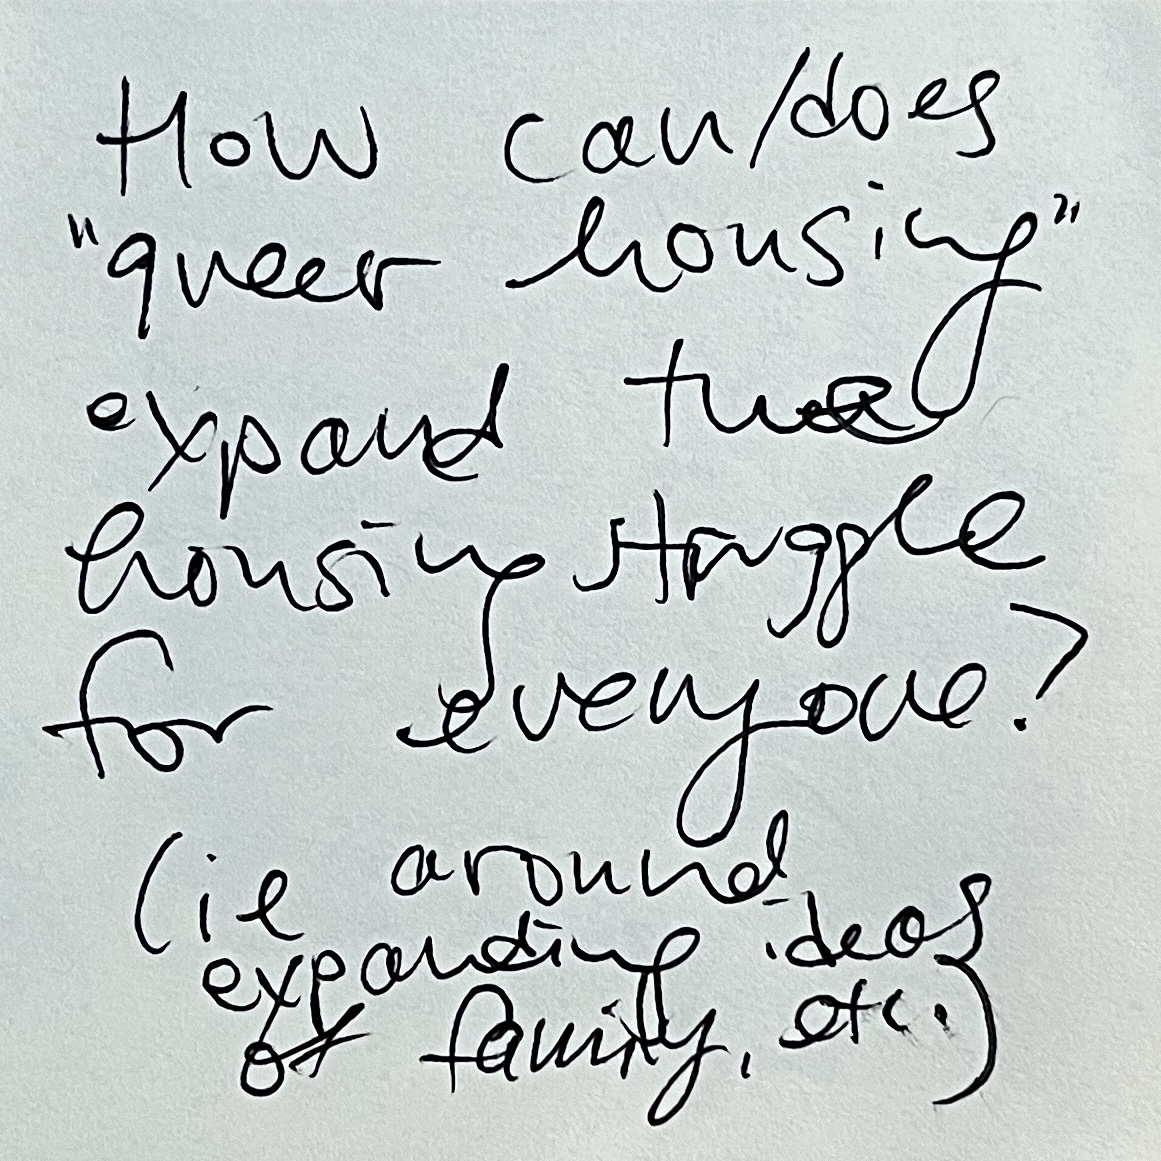 How can/does
"queer housing"
expand the
housing struggle
for everyone?
(ie around
expanding ideas
of family, etc.)